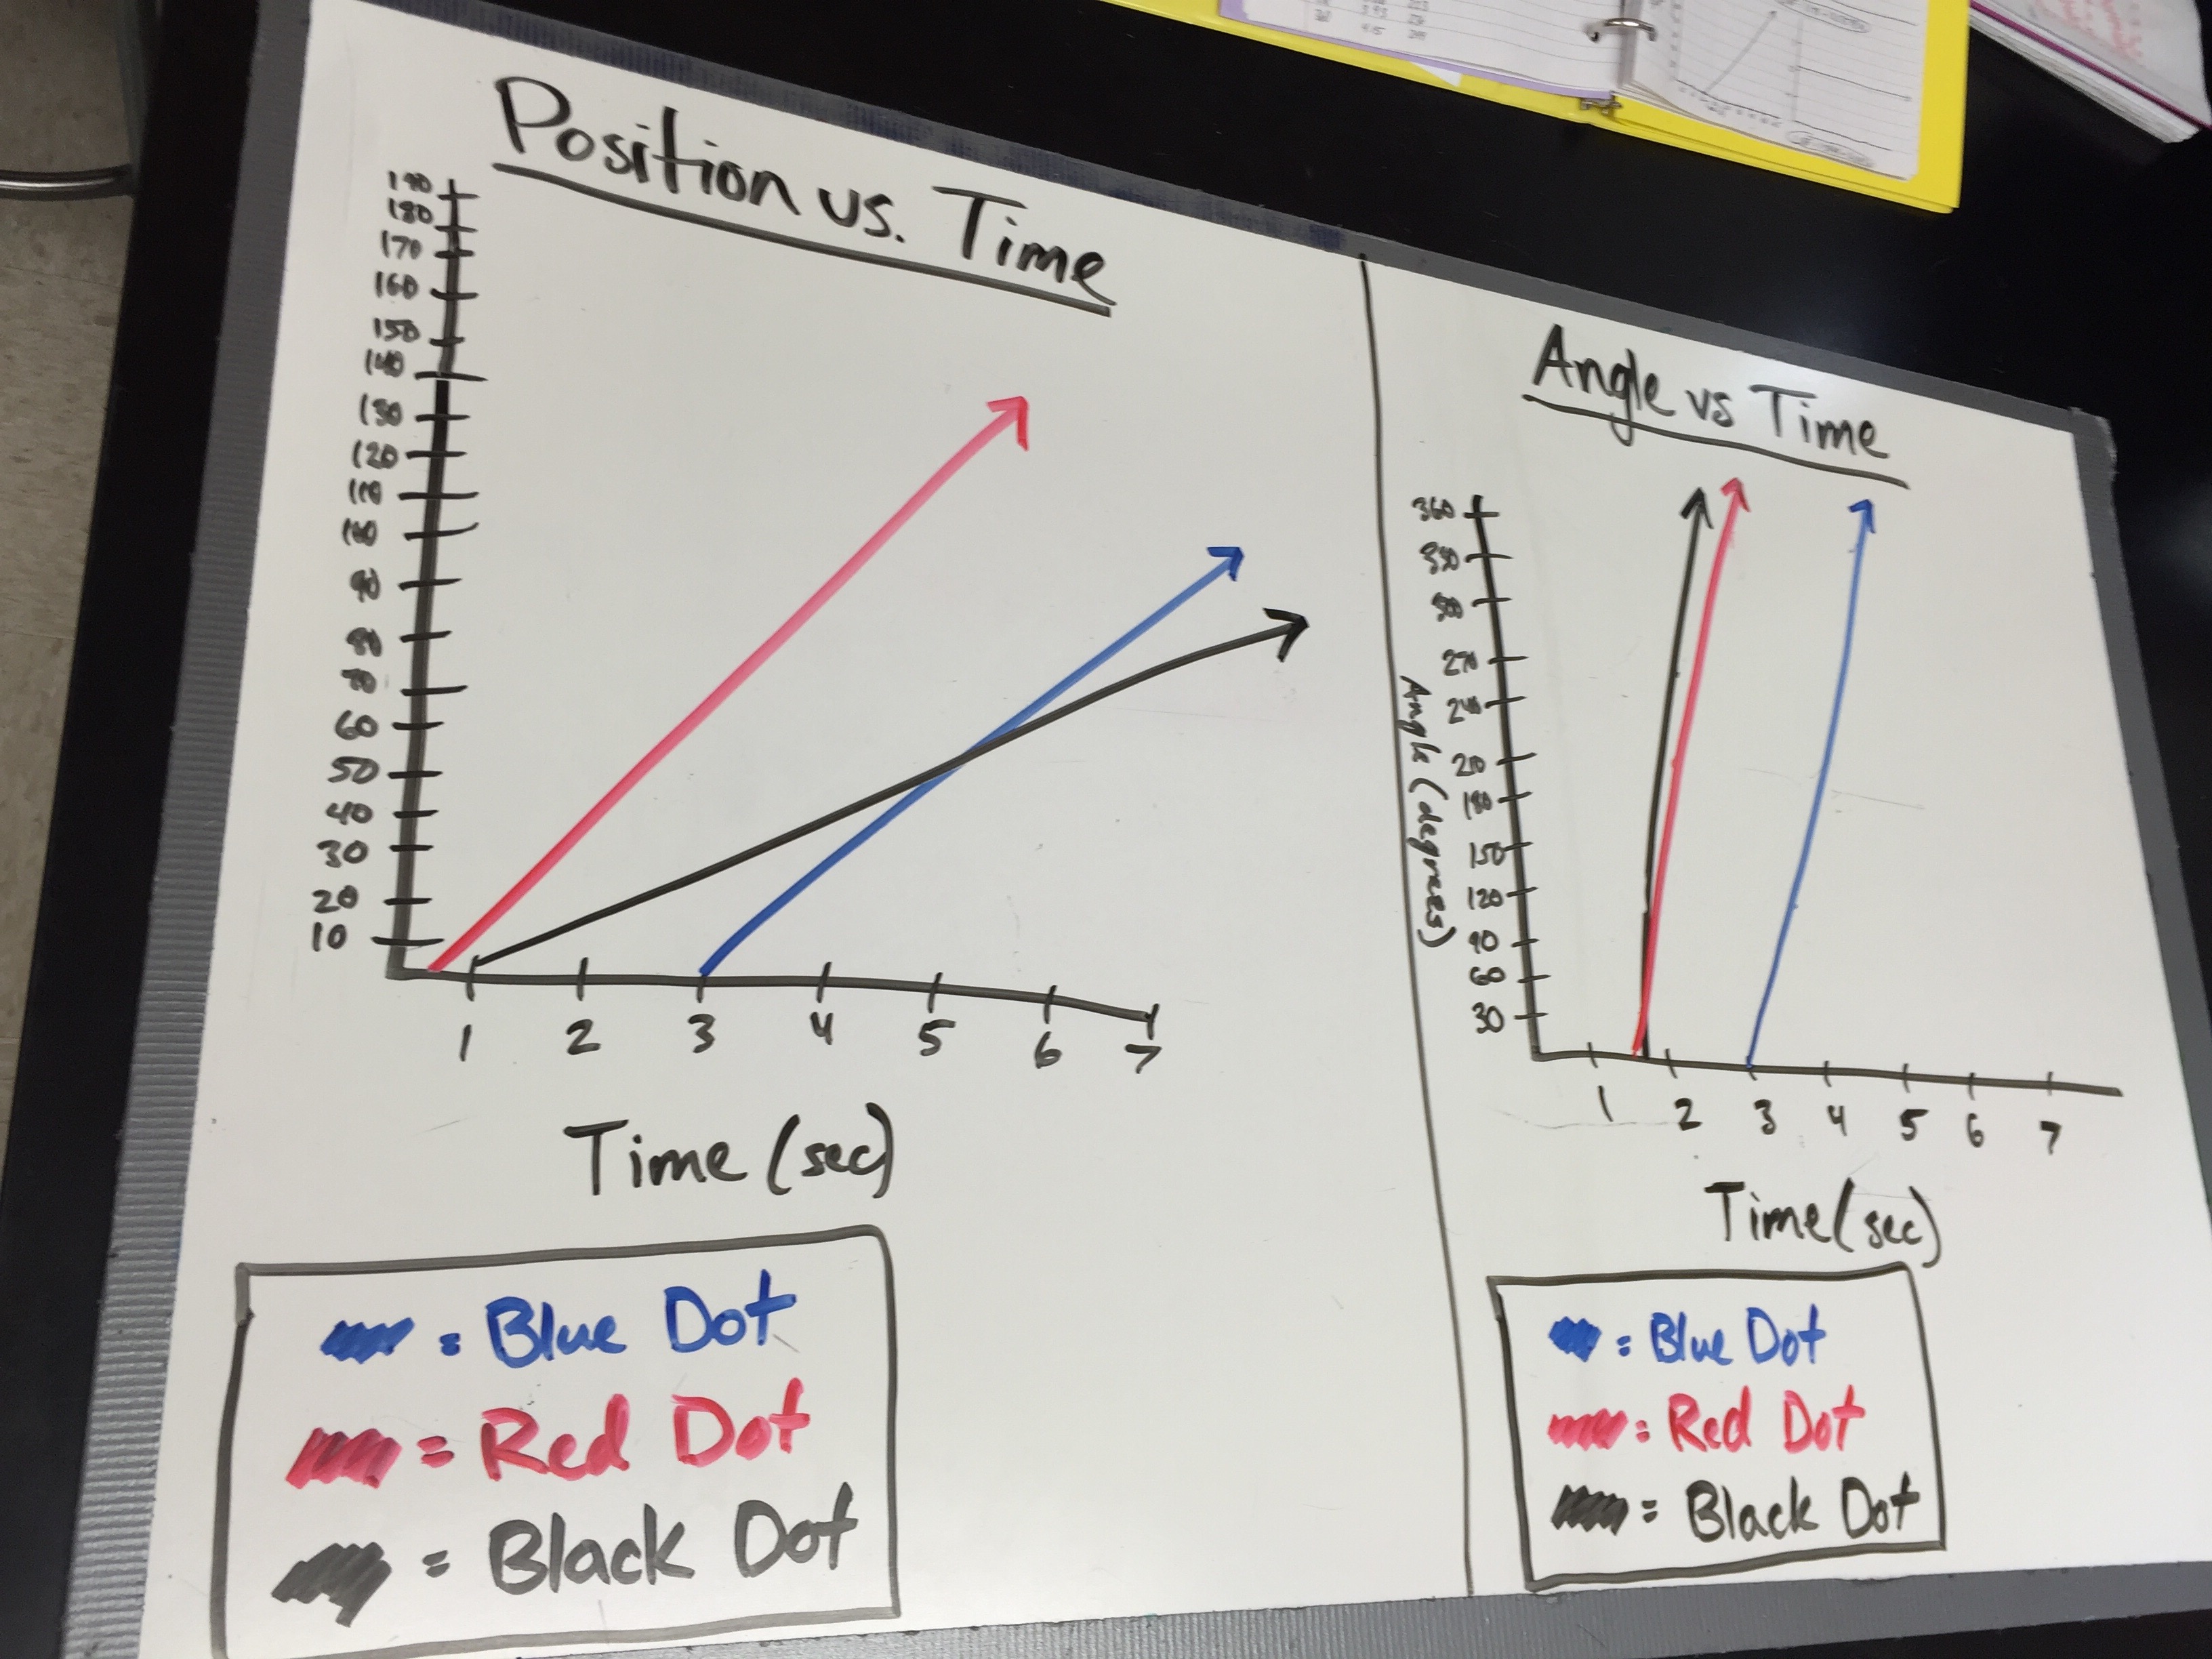 Position vs. Time
190
180
170
160
150
140
130
120
110
100
90
80
70
60
50
40
30
20
10
1 2 3 4 5 6 7
Time (sec)
= Blue Dot
= Red Dot
= Black Dot
Angle vs Time
360
330
300
270
240
210
180
150
120
90
60
30
Angle (degrees)
1 2 3 4 5 6 7
Time (sec)
= Blue Dot
= Red Dot
= Black Dot